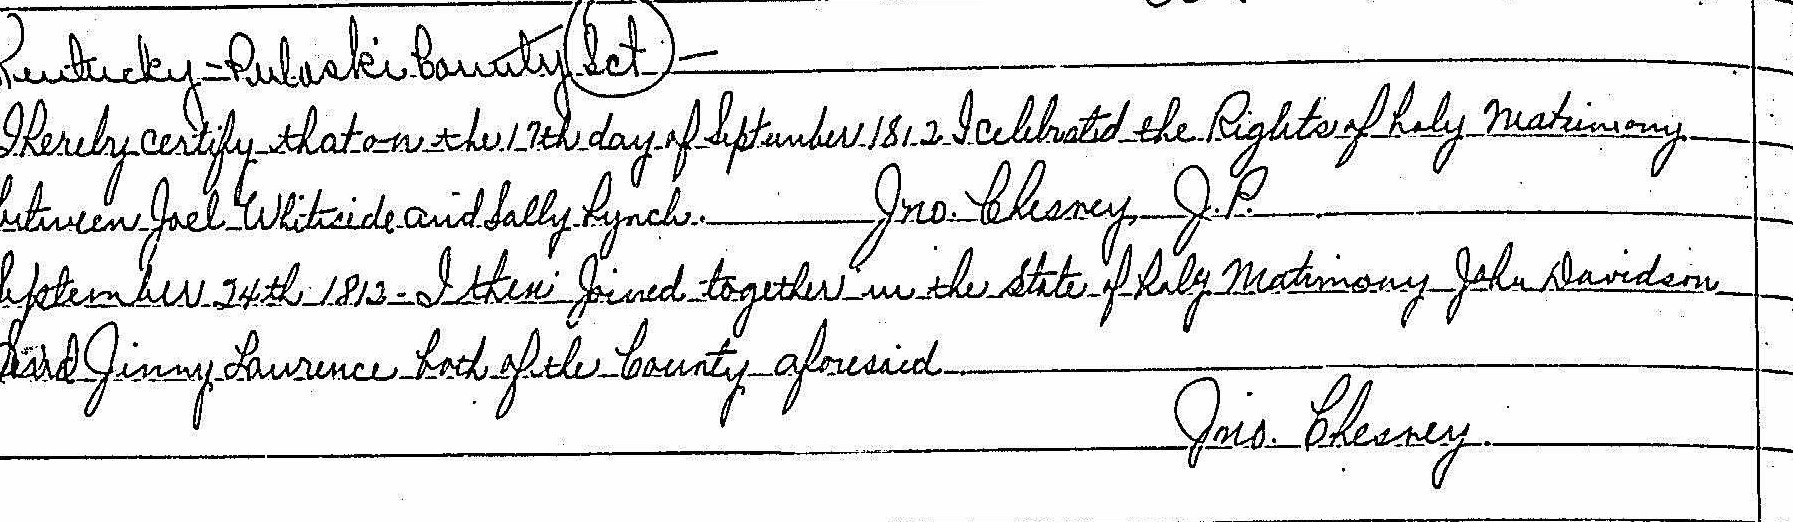 Kentucky = Pulaski County (Sct) -
I hereby certify that on the 17th day of September 1812 I celebrated the Rights of holy Matrimony
between Joel Whitside and Sally Lynch. Jno. Chesney, J.P.
September 24th 1812 - I then joined together in the State of holy Matimony John Davidson
and Jinny Laurence both of the County aforesaid
Jno. Chesney.